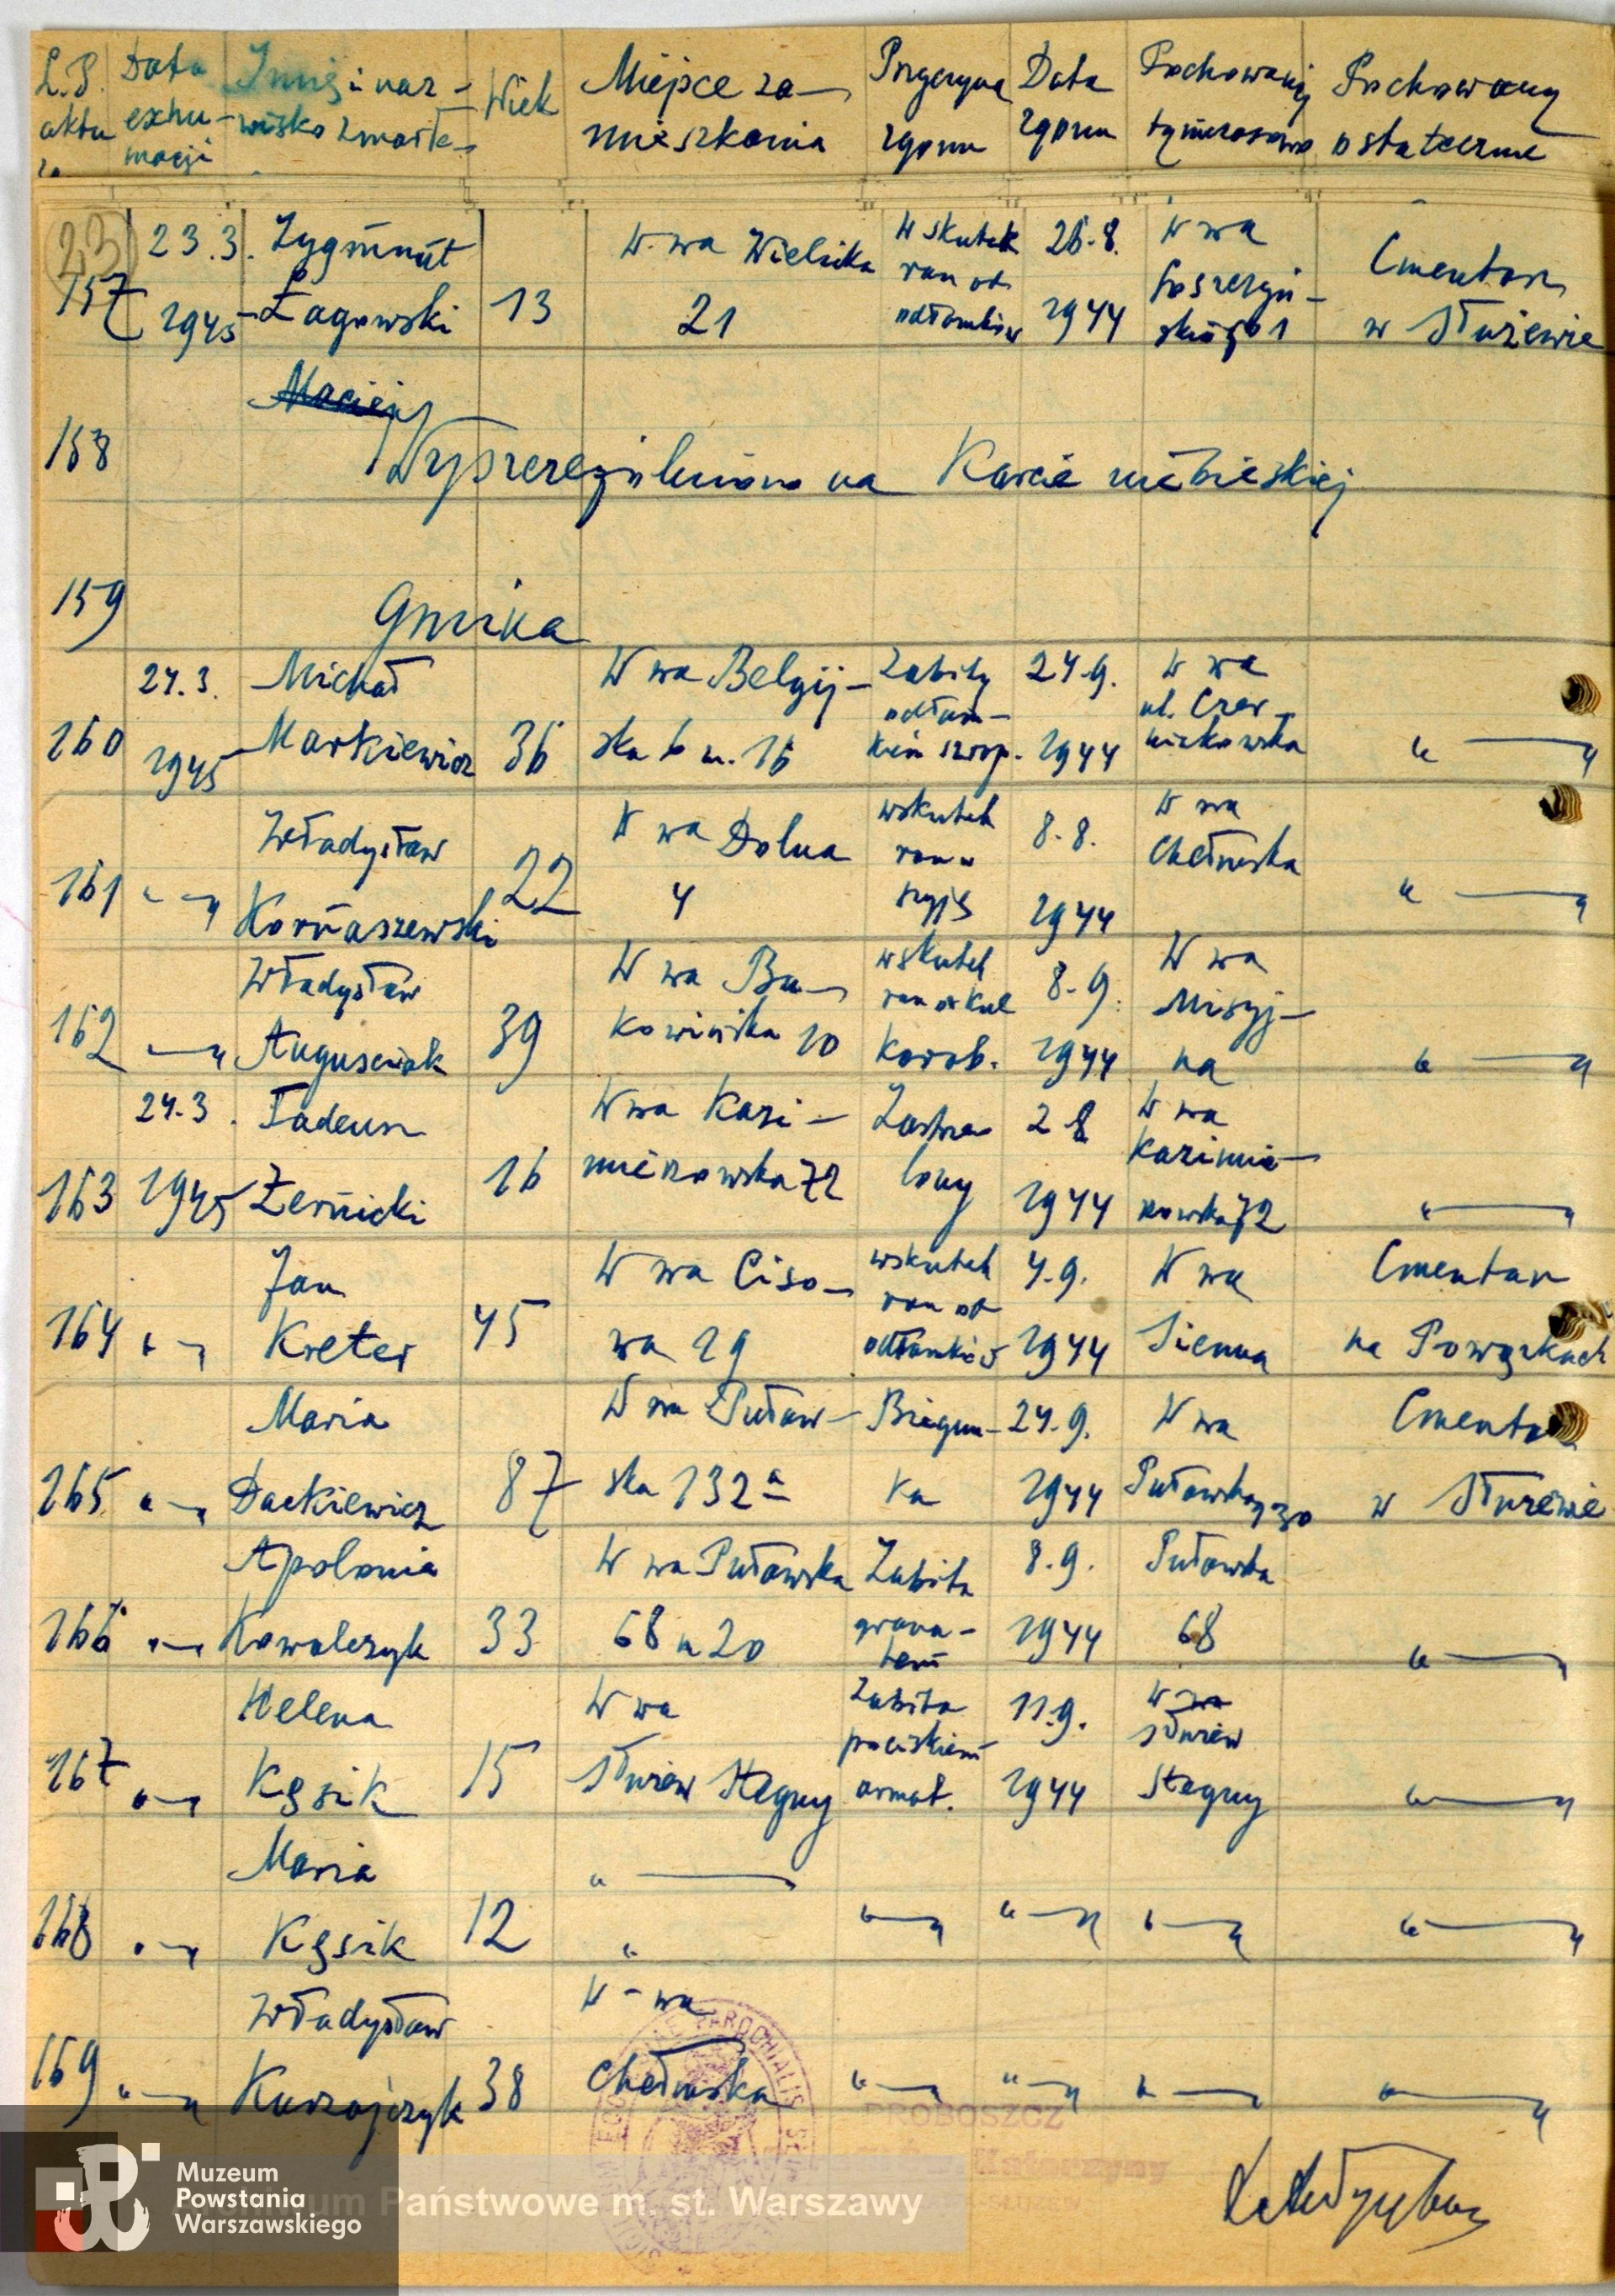 L.P. aktu
Data exhumacji
Imię i naz-
wisko zmarłe-
Wiek
Miejsce za-
mieszkania
Przyczyna
zgonu
Data
zgonu
Pochowany
tymczasowo
Pochowany
ostatecznie
23
157 23.3. 1945 Zygmunt Łagowski 13 W-wa Wielicka 21 Wskutek ran od odłamków 26.8. 1944 W wa 1 Cmentarz w Służewie
Maciej
158 Wyszczególniono na Karcie niebieskiej
159 Gminna
160 24.3. 1945 Michał Markiewicz 36 W wa Belgij-ska 6 m. 16 Zabity odłam-kiem szrap. 24.9. 1944 W wa ul. Czer-niakowska " — "
161 " — " Władysław Kornaszewski 22 W wa Dolna 4 wskutek ran w szyję 8.8. 1944 W wa Chełmska " — "
162 " — " Władysław Auguściak 39 W wa Bu-kowińska 10 wskutek ran od kul karab. 8.9. 1944 W wa Misyj-na " — "
163 24.3. 1945 Tadeusz Żernicki 16 W wa Kazi-mierzowska 72 Zastrze-lony 2 8 1944 W wa Kazimie-rzowska 72 " — "
164 " — " Jan Kreter 45 W wa Ciso-wa 19 wskutek ran od odłamków 4.9. 1944 W wa Sienna Cmentarz na Powązkach
165 " — " Maria Dackiewicz 87 W wa Puław-ska 132a Biegun-ka 24.9. 1944 W wa Puławska Cmentarz w Służewie
166 " — " Apolonia Kowalczyk 33 W wa Puławska 68 m 20 Zabita grana-tem 8.9. 1944 Puławska 68 " — "
167 " — " Helena Kęsik 15 W wa Służew Stegny Zabita pociskiem armat. 11.9. 1944 W wa Służew Stegny " — "
168 " — " Maria Kęsik 12 " — " " — " " — " " — " " — "
169 " — " Władysław Kurzajczyk 38 W-wa Chełmska " — " " — " " — " " — "
PAROCHIALIS
PROBOSZCZ
Katarzyny
Muzeum
Powstania
Warszawskiego
Państwowe m. st. Warszawy